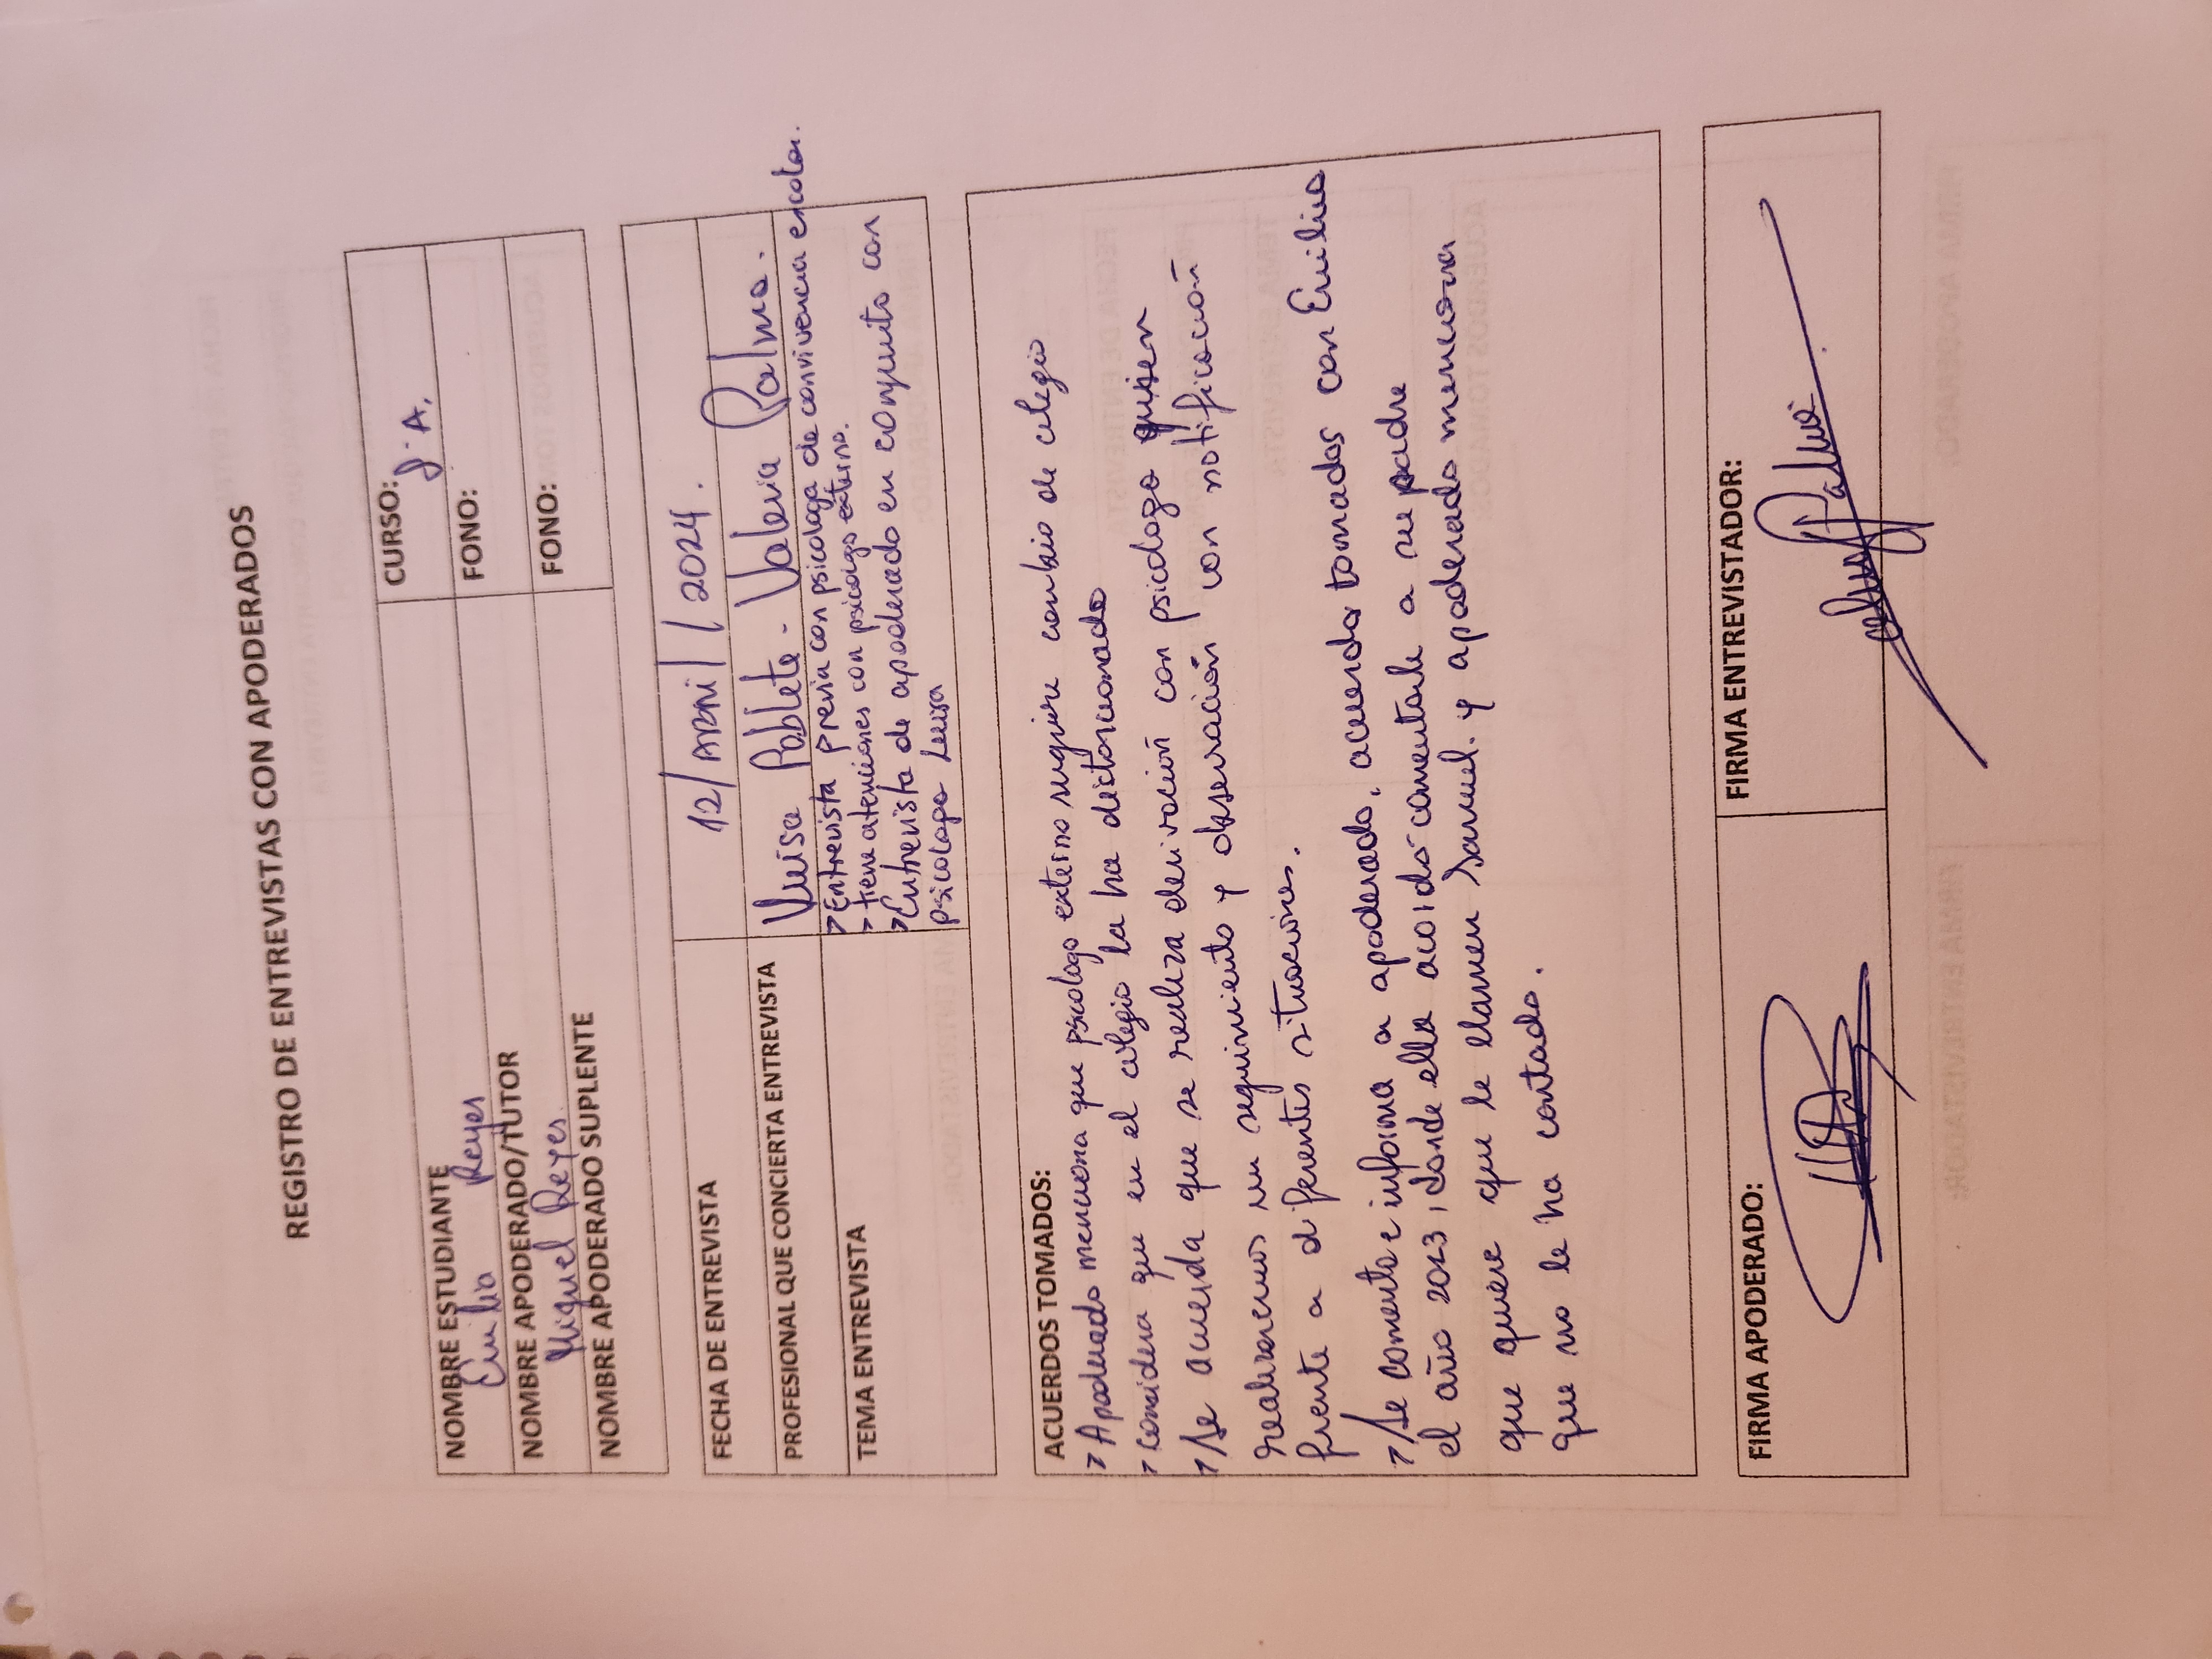 REGISTRO DE ENTREVISTAS CON APODERADOS
NOMBRE ESTUDIANTE
Emilia Reyes
CURSO:
8° A.
NOMBRE APODERADO/TUTOR
Miguel Reyes.
FONO:
NOMBRE APODERADO SUPLENTE
FONO:
FECHA DE ENTREVISTA
12/ABRIL/2024.
PROFESIONAL QUE CONCIERTA ENTREVISTA
Luisa Poblete - Valeria Palma.
TEMA ENTREVISTA
> Entrevista previa con psicologa de convivencia escolar.
> tiene atenciones con psicoigo externo.
> Entrevista de apoderado en conjunto con
psicologa Luisa
ACUERDOS TOMADOS:
> Apoderado menciona que psicologo externo sugiere cambio de colegio
> considera que en el colegio la ha distorcionado
> Se acuerda que se realiza derivación con psicologa quien
realizaremos un seguimiento y observación con notificación
frente a diferentes situaciones.
> Se comenta e informa a apoderado, acuerdos tomados con Emilia
el año 2023, donde ella comentarle a su padre
que quiere que le llamen Samuel. y apoderado menciona
que no le ha contado.
FIRMA APODERADO:
FIRMA ENTREVISTADOR: